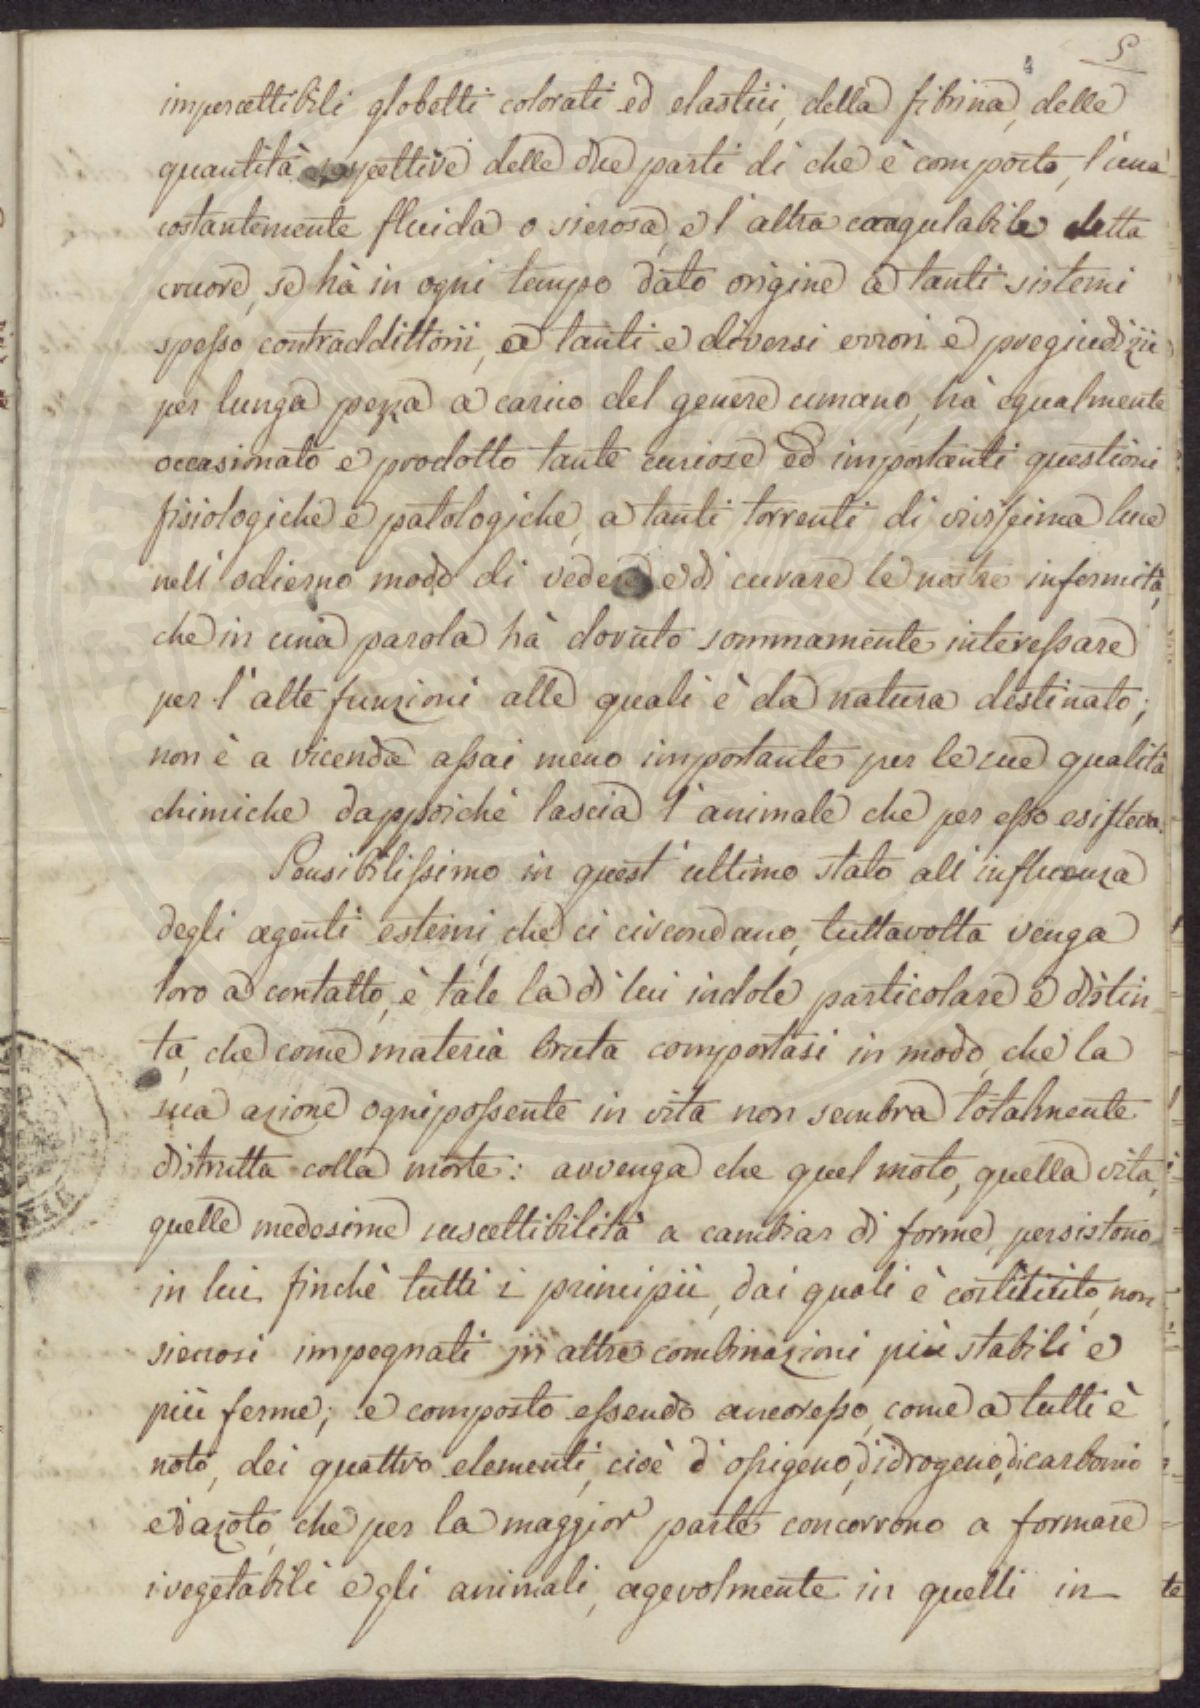 5
4
impercettibili globetti colorati ed elastici, della fibrina, delle
quantità rispettive delle due parti di che è composto, l'una
costantemente fluida o sierosa, e l'altra coagulabile detta
cruore, se hà in ogni tempo dato origine a tanti sistemi
spesso contraddittorii, a tanti e diversi errori e pregiudizii
per lunga pezza a carico del genere umano, hà egualmente
occasionato e prodotto tante curiose ed importanti questioni
fisiologiche e patologiche, a tanti torrenti di vivissima luce
nell'odierno modo di vedere e di curare le nostre infermità,
che in una parola hà dovuto sommamente interessare
per l'alte funzioni alle quali è da natura destinato;
non è a vicenda assai meno importante per le sue qualità
chimiche dappoichè lascia l'animale che per esso esisteva.
Sensibilissimo in quest'ultimo stato all'influenza
degli agenti esterni, che ci circondano, tuttavolta venga
loro a contatto, è tale la di lui indole particolare e distin
ta, che come materia bruta comportasi in modo, che la
sua azione ognipossente in vita non sembra totalmente
distrutta colla morte: avvenga che quel moto, quella vita,
quelle medesime suscettibilità a cambiar di forme, persistono
in lui finchè tutti i principii, dai quali è costituito, non
siensi impegnati in altre combinazioni più stabili e
più ferme; e composto essendo ancoresso, come a tutti è
noto, dei quattro elementi, cioè d'ossigeno, d'idrogeno, di carbonio
e d'azoto, che per la maggior parte concorrono a formare
i vegetabili e gli animali, agevolmente in quelli in